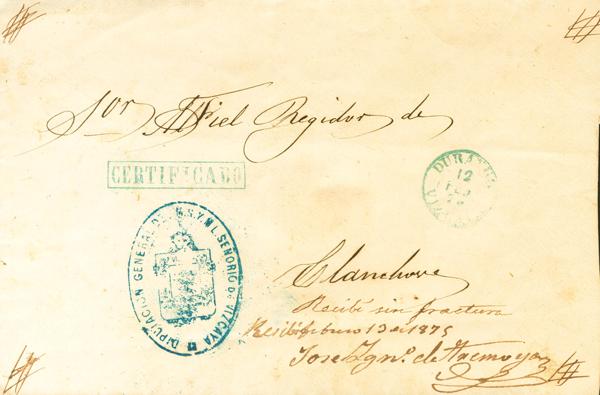 Sor Fiel Regidor de
CERTIFICADO
DURANGO
12
FEB
DIPUTACION GENERAL DEL M.N.Y.M.L. SEÑORIO DE VIZCAYA
Elanchove
Recibi sin fractura
Febrero 13 de 1875
Jose Igno. de